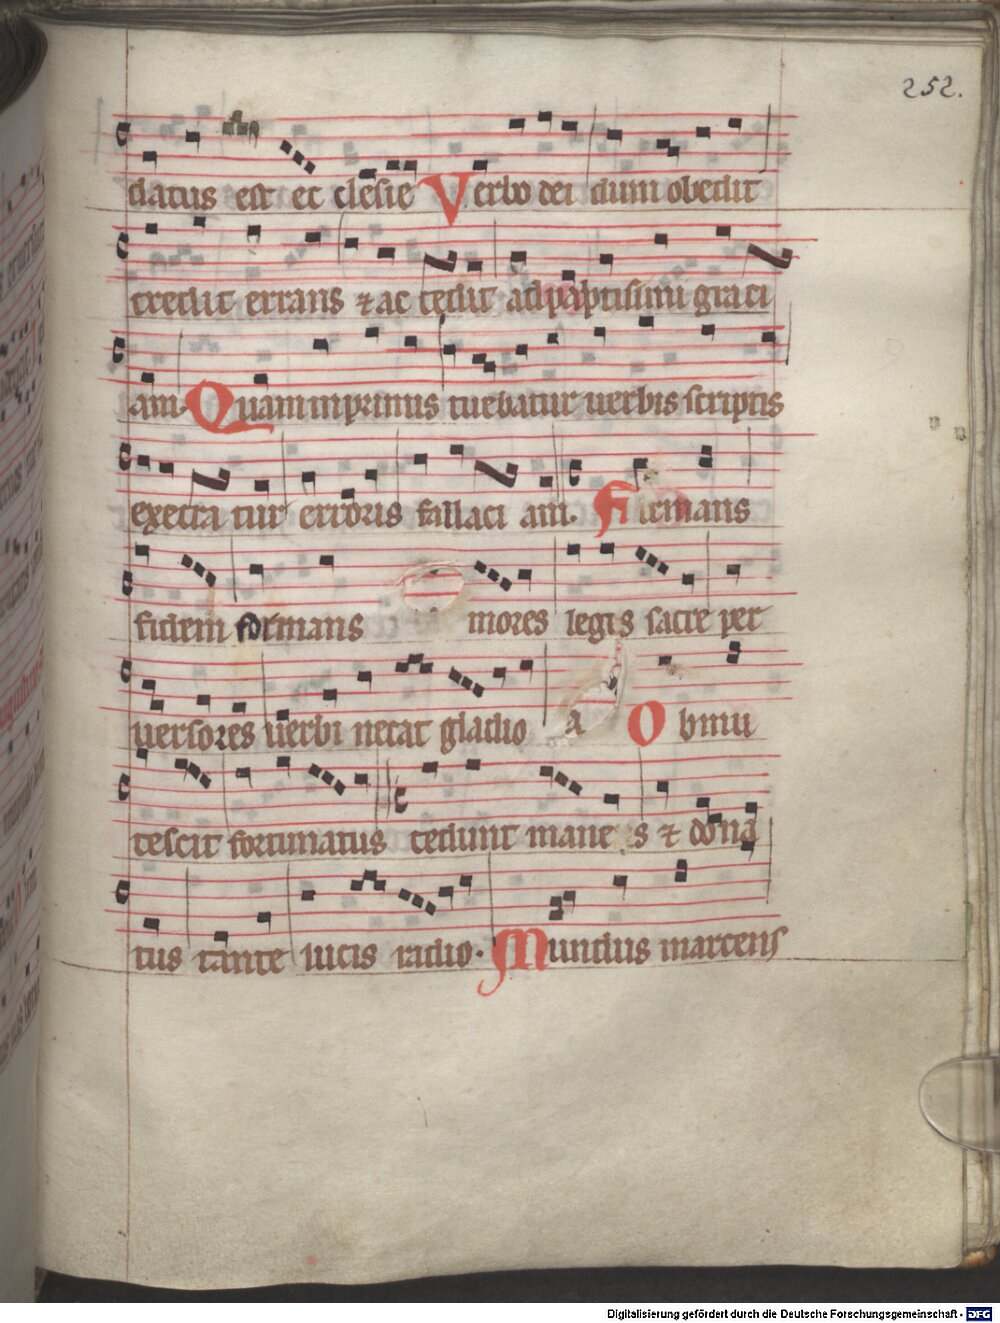 252.
datus est ec clesie Verbo dei dum obedit
credit errans ⁊ ac cedit ad paptismi graci
am. Quam inprimus tuebatur uerbis scriptis
execra tur erroris fallaci am. Firmans
fidem formans mores legis sacre per
uersores uerbi necat gladio a Obmu
tescit fortunatus cedunt mane is ⁊ dona
tus tante lucis radio. Mundus marcens
Digitalisierung gefördert durch die Deutsche Forschungsgemeinschaft - DFG